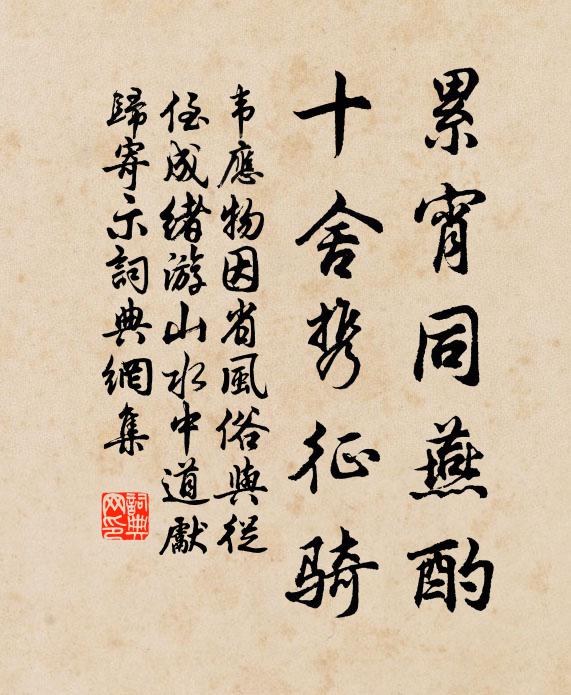 累宵同燕酌
十舍携征骑
韦應物因省風俗與從
侄成緒游山水中道獻
歸寄示詞典網集
詞典网印